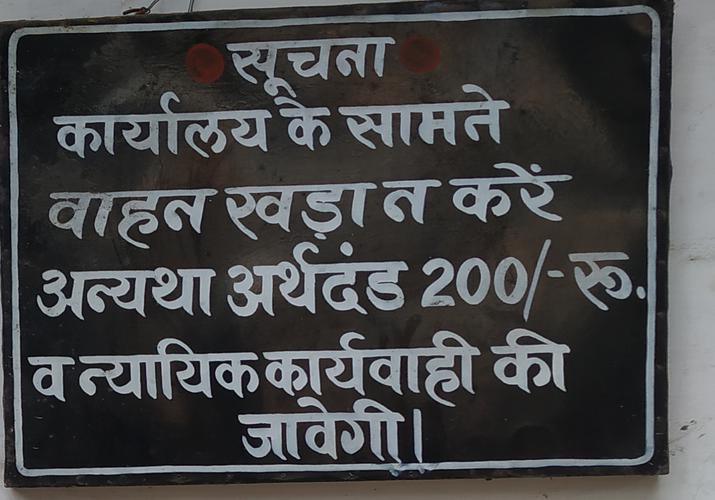 सूचना
कार्यालय के सामने
वाहन खड़ा न करें
अन्यथा अर्थदंड 200/- रू.
व न्यायिक कार्यवाही की
जावेगी।